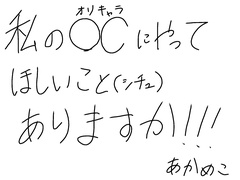 オリキャラ
私の○Cにやって
ほしいこと(シチュ)
ありますか!!!
あかめこ